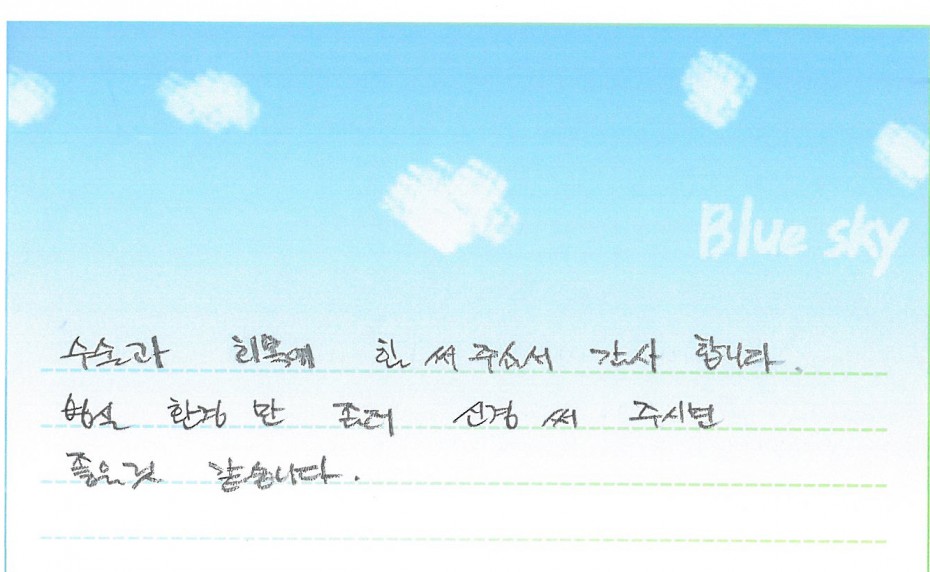 Blue sky
수술과 회복에 힘 써 주심서 감사 합니다.
병실 환경 만 좀더 신경 써 주시면
좋은것 같습니다.